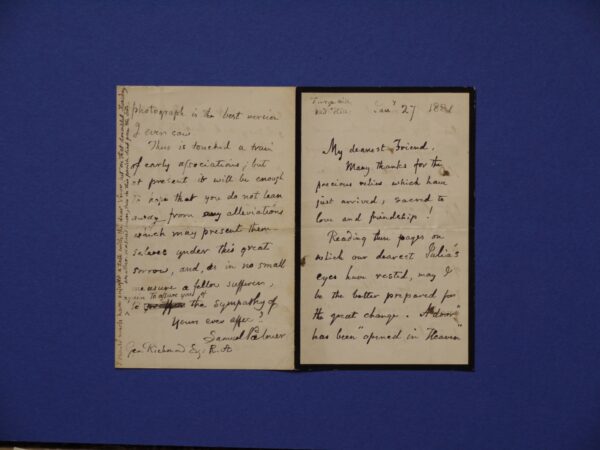 Jany 27 1881
My dearest Friend,
Many thanks for the
precious relics which have
just arrived, sacred to
love and friendship!
Reading the pages on
which our dearest Julia's
eyes have rested, may I
be the better prepared for
the great change. "A door"
has been "opened in Heaven"
photograph is the best version
I ever saw.
Thus is touched a train
of early associations; but
at present it will be enough
to hope that you do not lean
away from any alleviations
which may present them-
selves under this great
sorrow, and, as in no small
measure a fellow sufferer,
to assure you of
the sympathy of
Yours ever affect
Samuel Palmer
Geo. Richmond Esq. R.A